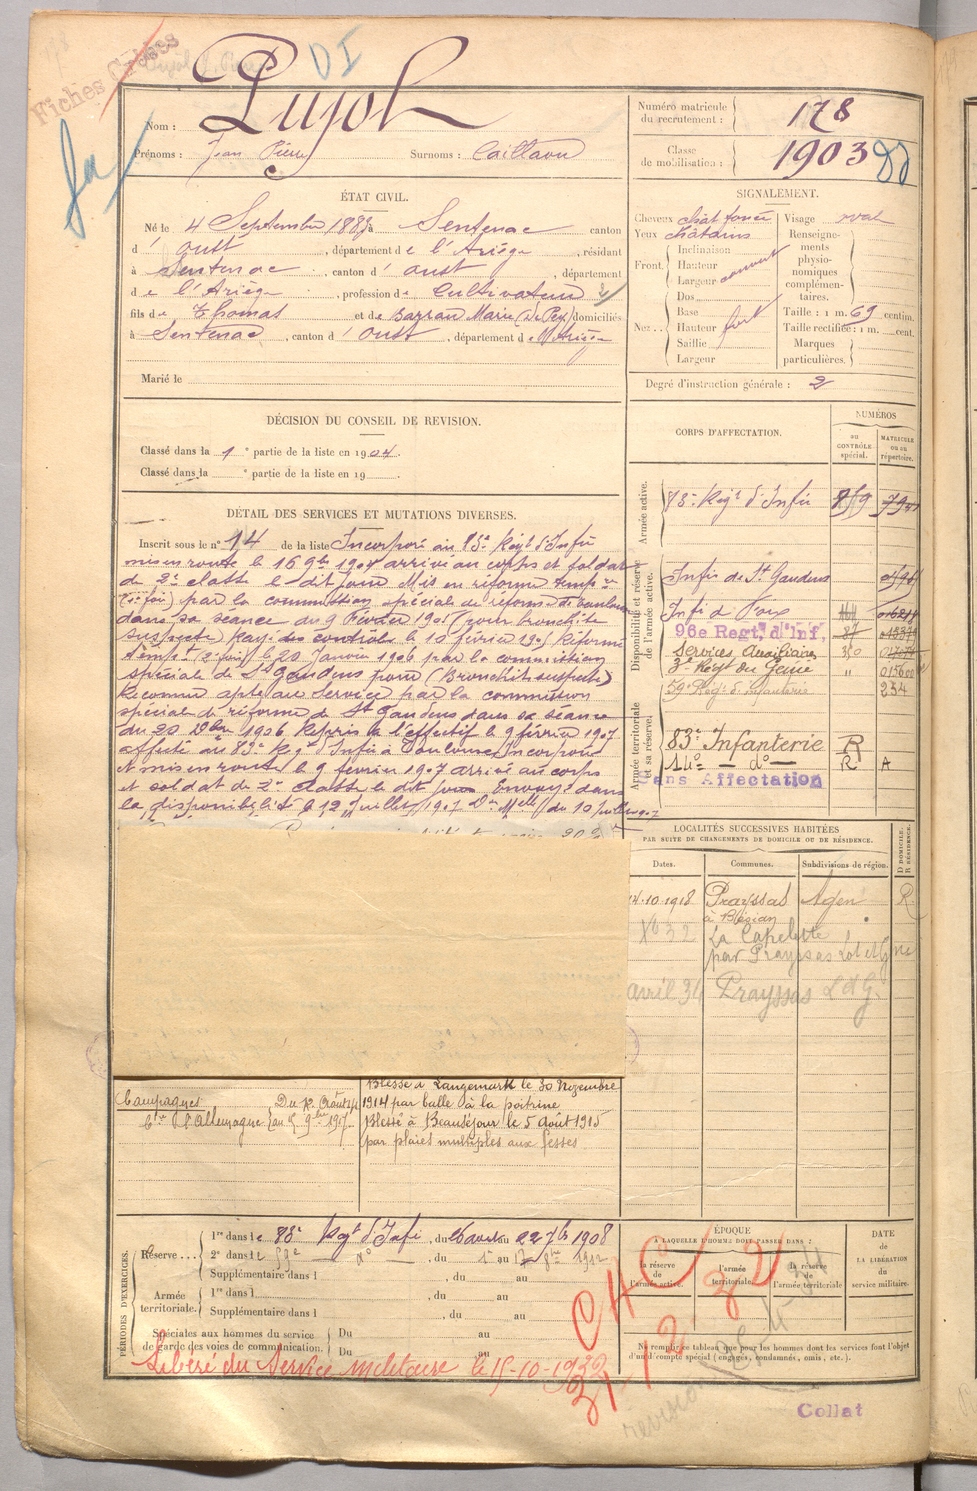 Fiches Créées
DI
Nom : Pujol
Prénoms : Jean Pierre Surnoms : Caillaou
Numéro matricule du recrutement : 178
Classe de mobilisation : 1903
ÉTAT CIVIL.
Né le 4 Septembre 1883 à Sentenac canton
d' Oust, département de l'Ariège, résidant
à Sentenac, canton d' Oust, département
de l'Ariège, profession de Cultivateur
fils de Thomas et de Barrau Marie (De Pey) domiciliés
à Sentenac, canton d' Oust, département de l'Ariège
Marié le
SIGNALEMENT.
Cheveux chât foncé Visage oval
Yeux châtains Renseignements physionomiques complémentaires.
Front. Inclinaison
Hauteur
Largeur
Nez. Dos
Base
Hauteur fort
Saillie
Largeur
Taille : 1 m. 69 centim.
Taille rectifiée : 1 m. cent.
Marques particulières.
Degré d'instruction générale : 2
DÉCISION DU CONSEIL DE REVISION.
Classé dans la 1e partie de la liste en 1904.
Classé dans la e partie de la liste en 19
DÉTAIL DES SERVICES ET MUTATIONS DIVERSES.
Inscrit sous le n° 14 de la liste Incorporé au 83e Régt d'Infie
mis en route le 16 9bre 1904 arrivé au corps et soldat
de 2e classe le dit jour Mis en réforme temp re
(1e fois) par la commission spéciale de réforme de Toulouse
dans sa séance du 9 Février 1905 (pour bronchite
suspecte) Rayé des contrôles le 10 février 1905 Réformé
tempt (2e fois) le 20 Janvier 1906 par la commission
spéciale de St Gaudens pour (Bronchite suspecte)
Reconnu apte au Service par la commission
spéciale de réforme de St Gaudens dans sa séance
du 20 Xbre 1906 Repris à l'effectif le 9 février 1907
affecté au 83e Régt d'Infie à Toulouse Incorporé
et mis en route le 9 février 1907 arrivé au corps
et soldat de 2e classe le dit jour Envoyé dans
la disponibilité le 12 Juillet 1907 Don Mlle du 10 juillet 1907
CORPS D'AFFECTATION.
NUMÉROS
au contrôle spécial.
matricule ou au répertoire.
Armée active.
83e Régt d'Infie
Disponibilité et réserve de l'armée active.
Infie de St Gaudens
Infie de Foix
96e Regt. d'Inf. 87
Services Auxiliaires 350
3e Régt du Génie "
59e Régt d'infanterie 254
Armée territoriale et sa réserve.
83e Infanterie R
14e — do — R A
Sans Affectation
LOCALITÉS SUCCESSIVES HABITÉES
PAR SUITE DE CHANGEMENTS DE DOMICILE OU DE RÉSIDENCE.
Dates. Communes. Subdivisions de région. D DOMICILE. R RÉSIDENCE.
14.10.1918 Prayssas Agen R.
à Blésian
La Capelette
par Prayssas Lot et G
avril 34 Prayssas L et G.
Campagnes
Ctre l'Allemagne
Blessé à Langemark le 30 Novembre
1914 par balle à la poitrine
Blessé à Beauséjour le 5 Août 1915
par plaies multiples aux fesses
PÉRIODES D'EXERCICES.
Réserve 1re dans le 83e Régt d'Infie, du 31 août au 22 7bre 1908
2e dans le 59e do, du 1er au 17 8bre 1912
Supplémentaire dans l , du au
Armée territoriale. 1re dans l , du au
Supplémentaire dans l , du au
Spéciales aux hommes du service de garde des voies de communication. Du au
Du au
Libéré du Service militaire le 15-10-1932
ÉPOQUE
À LAQUELLE L'HOMME DOIT PASSER DANS :
la réserve de l'armée active.
l'armée territoriale.
la réserve de l'armée territoriale
DATE de LA LIBÉRATION du service militaire.
Ne remplir ce tableau que pour les hommes dont les services font l'objet
d'un compte spécial (engagés, condamnés, omis, etc.).
Collat